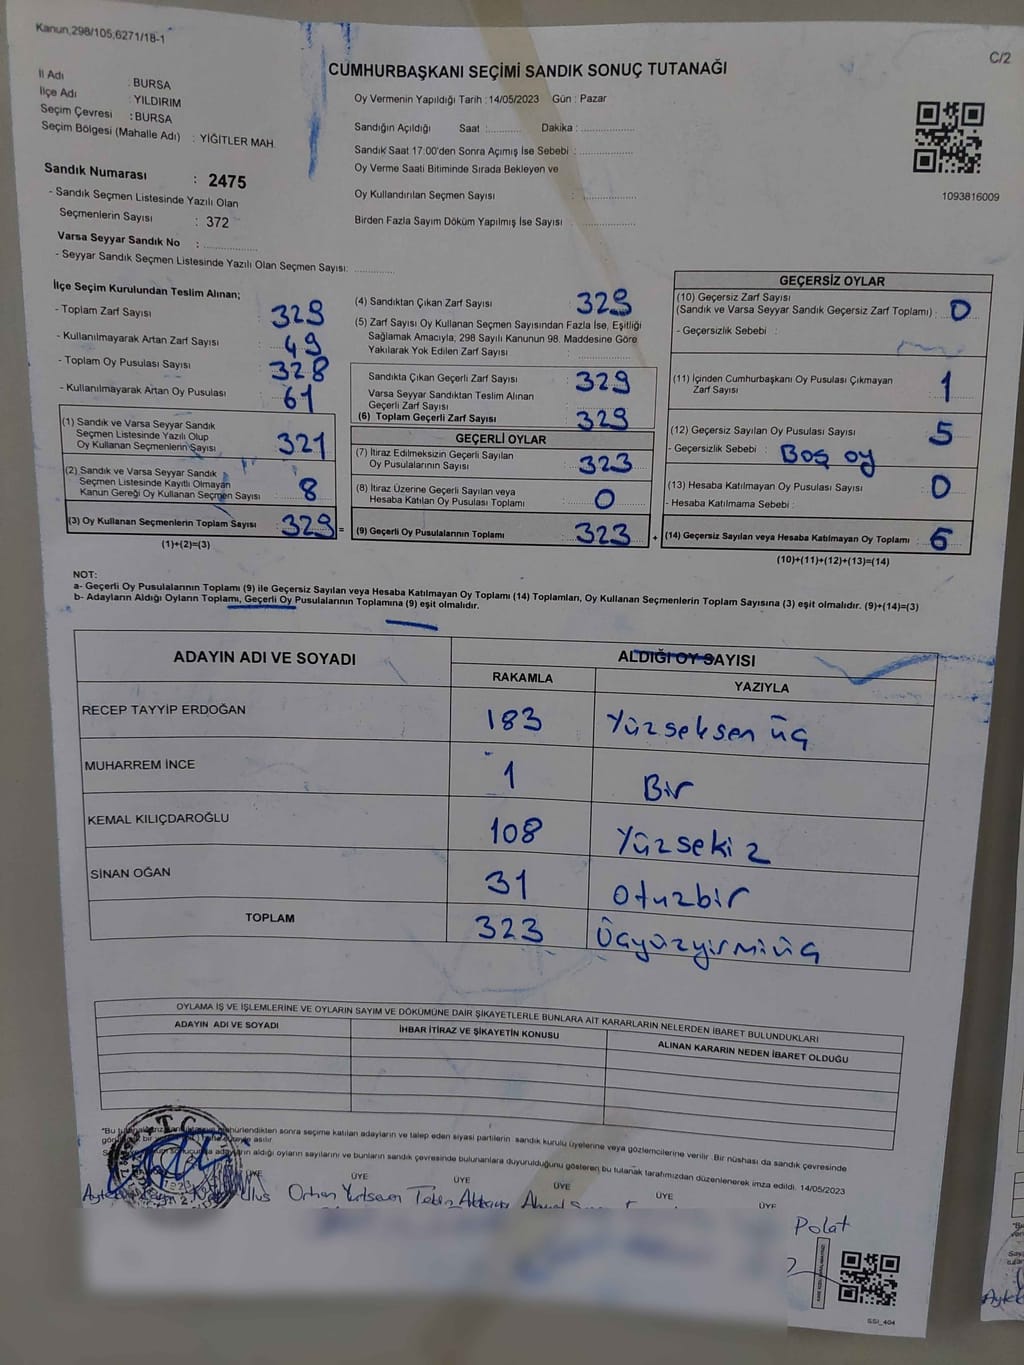 Kanun,298/105,6271/18-1
C/2
CUMHURBAŞKANI SEÇİMİ SANDIK SONUÇ TUTANAĞI
İl Adı : BURSA
İlçe Adı : YILDIRIM
Seçim Çevresi : BURSA
Seçim Bölgesi (Mahalle Adı) : YİĞİTLER MAH.
Sandık Numarası : 2475
- Sandık Seçmen Listesinde Yazılı Olan
Seçmenlerin Sayısı : 372
Varsa Seyyar Sandık No : ...............
- Seyyar Sandık Seçmen Listesinde Yazılı Olan Seçmen Sayısı: ............
Oy Vermenin Yapıldığı Tarih : 14/05/2023 Gün : Pazar
Sandığın Açıldığı Saat :.......... Dakika :................
Sandık Saat 17.00'den Sonra Açımış İse Sebebi : ................
Oy Verme Saati Bitiminde Sırada Bekleyen ve
Oy Kullandırılan Seçmen Sayısı : ................
Birden Fazla Sayım Döküm Yapılmış İse Sayısı : ................
1093816009
İlçe Seçim Kurulundan Teslim Alınan;
- Toplam Zarf Sayısı 329
- Kullanılmayarak Artan Zarf Sayısı : 49
- Toplam Oy Pusulası Sayısı : 328
- Kullanılmayarak Artan Oy Pusulası : 61
(1) Sandık ve Varsa Seyyar Sandık
Seçmen Listesinde Yazılı Olup
Oy Kullanan Seçmenlerin Sayısı : 321
(2) Sandık ve Varsa Seyyar Sandık
Seçmen Listesinde Kayıtlı Olmayan
Kanun Gereği Oy Kullanan Seçmen Sayısı : 8
(3) Oy Kullanan Seçmenlerin Toplam Sayısı : 329 =
(1)+(2)=(3)
(4) Sandıktan Çıkan Zarf Sayısı : 329
(5) Zarf Sayısı Oy Kullanan Seçmen Sayısından Fazla İse, Eşitliği
Sağlamak Amacıyla, 298 Sayılı Kanunun 98. Maddesine Göre
Yakılarak Yok Edilen Zarf Sayısı : ................
Sandıkta Çıkan Geçerli Zarf Sayısı : 329
Varsa Seyyar Sandıktan Teslim Alınan
Geçerli Zarf Sayısı :
(6) Toplam Geçerli Zarf Sayısı : 329
GEÇERLİ OYLAR
(7) İtiraz Edilmeksizin Geçerli Sayılan
Oy Pusulalarının Sayısı : 323
(8) İtiraz Üzerine Geçerli Sayılan veya
Hesaba Katılan Oy Pusulası Toplamı : 0
(9) Geçerli Oy Pusulalarının Toplamı : 323 +
GEÇERSİZ OYLAR
(10) Geçersiz Zarf Sayısı
(Sandık ve Varsa Seyyar Sandık Geçersiz Zarf Toplamı) : 0
- Geçersizlik Sebebi :
(11) İçinden Cumhurbaşkanı Oy Pusulası Çıkmayan
Zarf Sayısı : 1
(12) Geçersiz Sayılan Oy Pusulası Sayısı : 5
- Geçersizlik Sebebi : Boş oy
(13) Hesaba Katılmayan Oy Pusulası Sayısı : 0
- Hesaba Katılmama Sebebi :
(14) Geçersiz Sayılan veya Hesaba Katılmayan Oy Toplamı : 6
(10)+(11)+(12)+(13)=(14)
NOT:
a- Geçerli Oy Pusulalarının Toplamı (9) ile Geçersiz Sayılan veya Hesaba Katılmayan Oy Toplamı (14) Toplamları, Oy Kullanan Seçmenlerin Toplam Sayısına (3) eşit olmalıdır. (9)+(14)=(3)
b- Adayların Aldığı Oyların Toplamı, Geçerli Oy Pusulalarının Toplamına (9) eşit olmalıdır.
ADAYIN ADI VE SOYADI ALDIĞI OY SAYISI
RAKAMLA YAZIYLA
RECEP TAYYİP ERDOĞAN 183 Yüzseksen üç
MUHARREM İNCE 1 Bir
KEMAL KILIÇDAROĞLU 108 Yüzsekiz
SİNAN OĞAN 31 Otuzbir
TOPLAM 323 Üçyüzyirmiüç
OYLAMA İŞ VE İŞLEMLERİNE VE OYLARIN SAYIM VE DÖKÜMÜNE DAİR ŞİKAYETLERLE BUNLARA AİT KARARLARIN NELERDEN İBARET BULUNDUKLARI
ADAYIN ADI VE SOYADI İHBAR İTİRAZ VE ŞİKAYETİN KONUSU ALINAN KARARIN NEDEN İBARET OLDUĞU
mühürlendikten sonra seçime katılan adayların ve talep eden siyasi partilerin sandık kurulu üyelerine veya gözlemcilerine verilir. Bir nüshası da sandık çevresinde
asılır.
aldığı oyların sayılarını ve bunların sandık çevresinde bulunanlara duyurulduğunu gösteren bu tutanak tarafımızdan düzenlenerek imza edildi. 14/05/2023
ÜYE ÜYE ÜYE ÜYE ÜYE ÜYE
Orhan
Polat
SSI_404